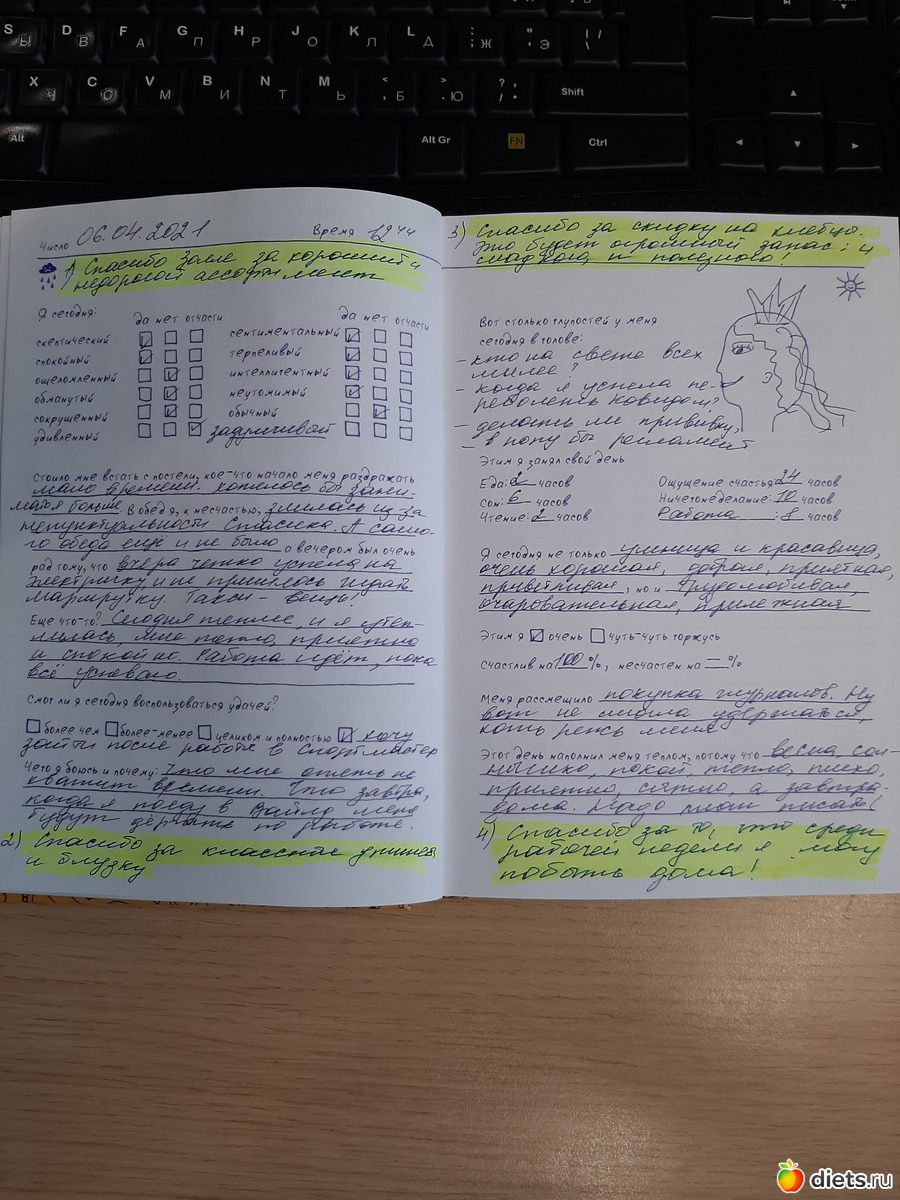 S Ы D В F А G П H Р J О K Л L Д ; Ж " Э | / \
X Ч C С V М B И N Т M Ь < , Б > . Ю ? / , . Shift
Alt Alt Gr FN Ctrl
Число 06.04.2021 Время 12 44
1) Спасибо за хороший и
недорогой ассортимент
Я сегодня:
да нет отчасти
скептический
спокойный
ошеломленный
обманутый
сокрушенный
удивленный
да нет отчасти
сентиментальный
терпеливый
интеллигентный
неутомимый
обычный
задумчивый
Стоило мне встать с постели, кое-что начало меня раздражать
мало времени. Хотелось бы зани-
маться больше. В обед я, к несчастью, злилась из-за
непунктуальности Спасика. А само-
го обеда ещё и не было а вечером был очень
рад тому, что вчера чётко успела на
электричку и не пришлось ждать
маршрутку. Такси - вещь!
Еще что-то? Сегодня теплее, и я утеп-
лилась, мне тепло, приятно
и спокойно. Работа идёт, пока
всё успеваю.
Смог ли я сегодня воспользоваться удачей?
более чем более-менее целиком и полностью хочу
зайти после работы в Спортмастер
Чего я боюсь и почему: Что мне опять не
хватит времени. Что завтра,
когда я поеду в меня
будут дёргать по работе.
2) Спасибо за классные
и блузку
3) Спасибо за скидку на хлебцы.
Это будет огромный запас: и
сладкого, и полезного!
Вот столько глупостей у меня
сегодня в голове:
- кто на свете всех
милее?
- когда я успела пе-
реболеть ковидом?
- делать ли прививку,
- в попу бы
Этим я занял свой день
Еда: 2 часов
Сон: 6 часов
Чтение: 2 часов
Ощущение счастья: 24 часов
Ничегонеделание: 10 часов
Работа : 8 часов
Я сегодня не только умница и красавица,
очень хорошая, добрая, приятная,
приветливая, но и трудолюбивая,
очаровательная, прилежная
Этим я очень чуть-чуть горжусь
счастлив на 100 %, несчастен на — %
Меня рассмешило покупка журналов. Ну
вот не смогла удержаться,
хоть режь меня
Этот день наполнил меня теплом, потому что весна, сол-
нышко, покой, тепло, тихо,
приятно, сытно, а завтра -
дома. Надо план писать!
4) Спасибо за то, что среди
рабочей недели я могу
побыть дома!
diets.ru